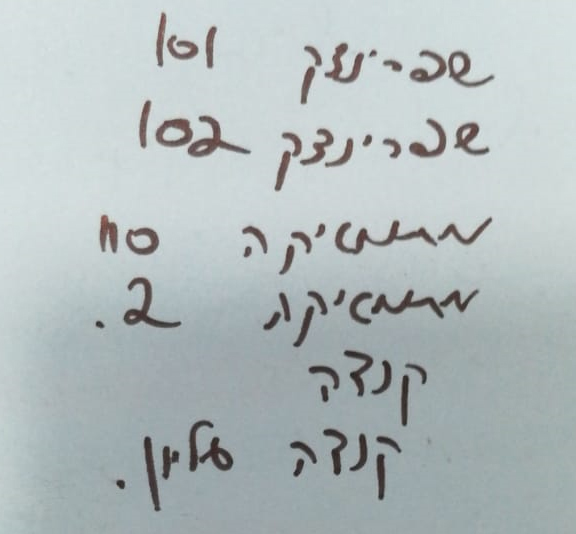 שפרינצק 101
שפרינצק 102
מתמטיקה 110
מתמטיקה 2.
קנדה
קנדה עליון.